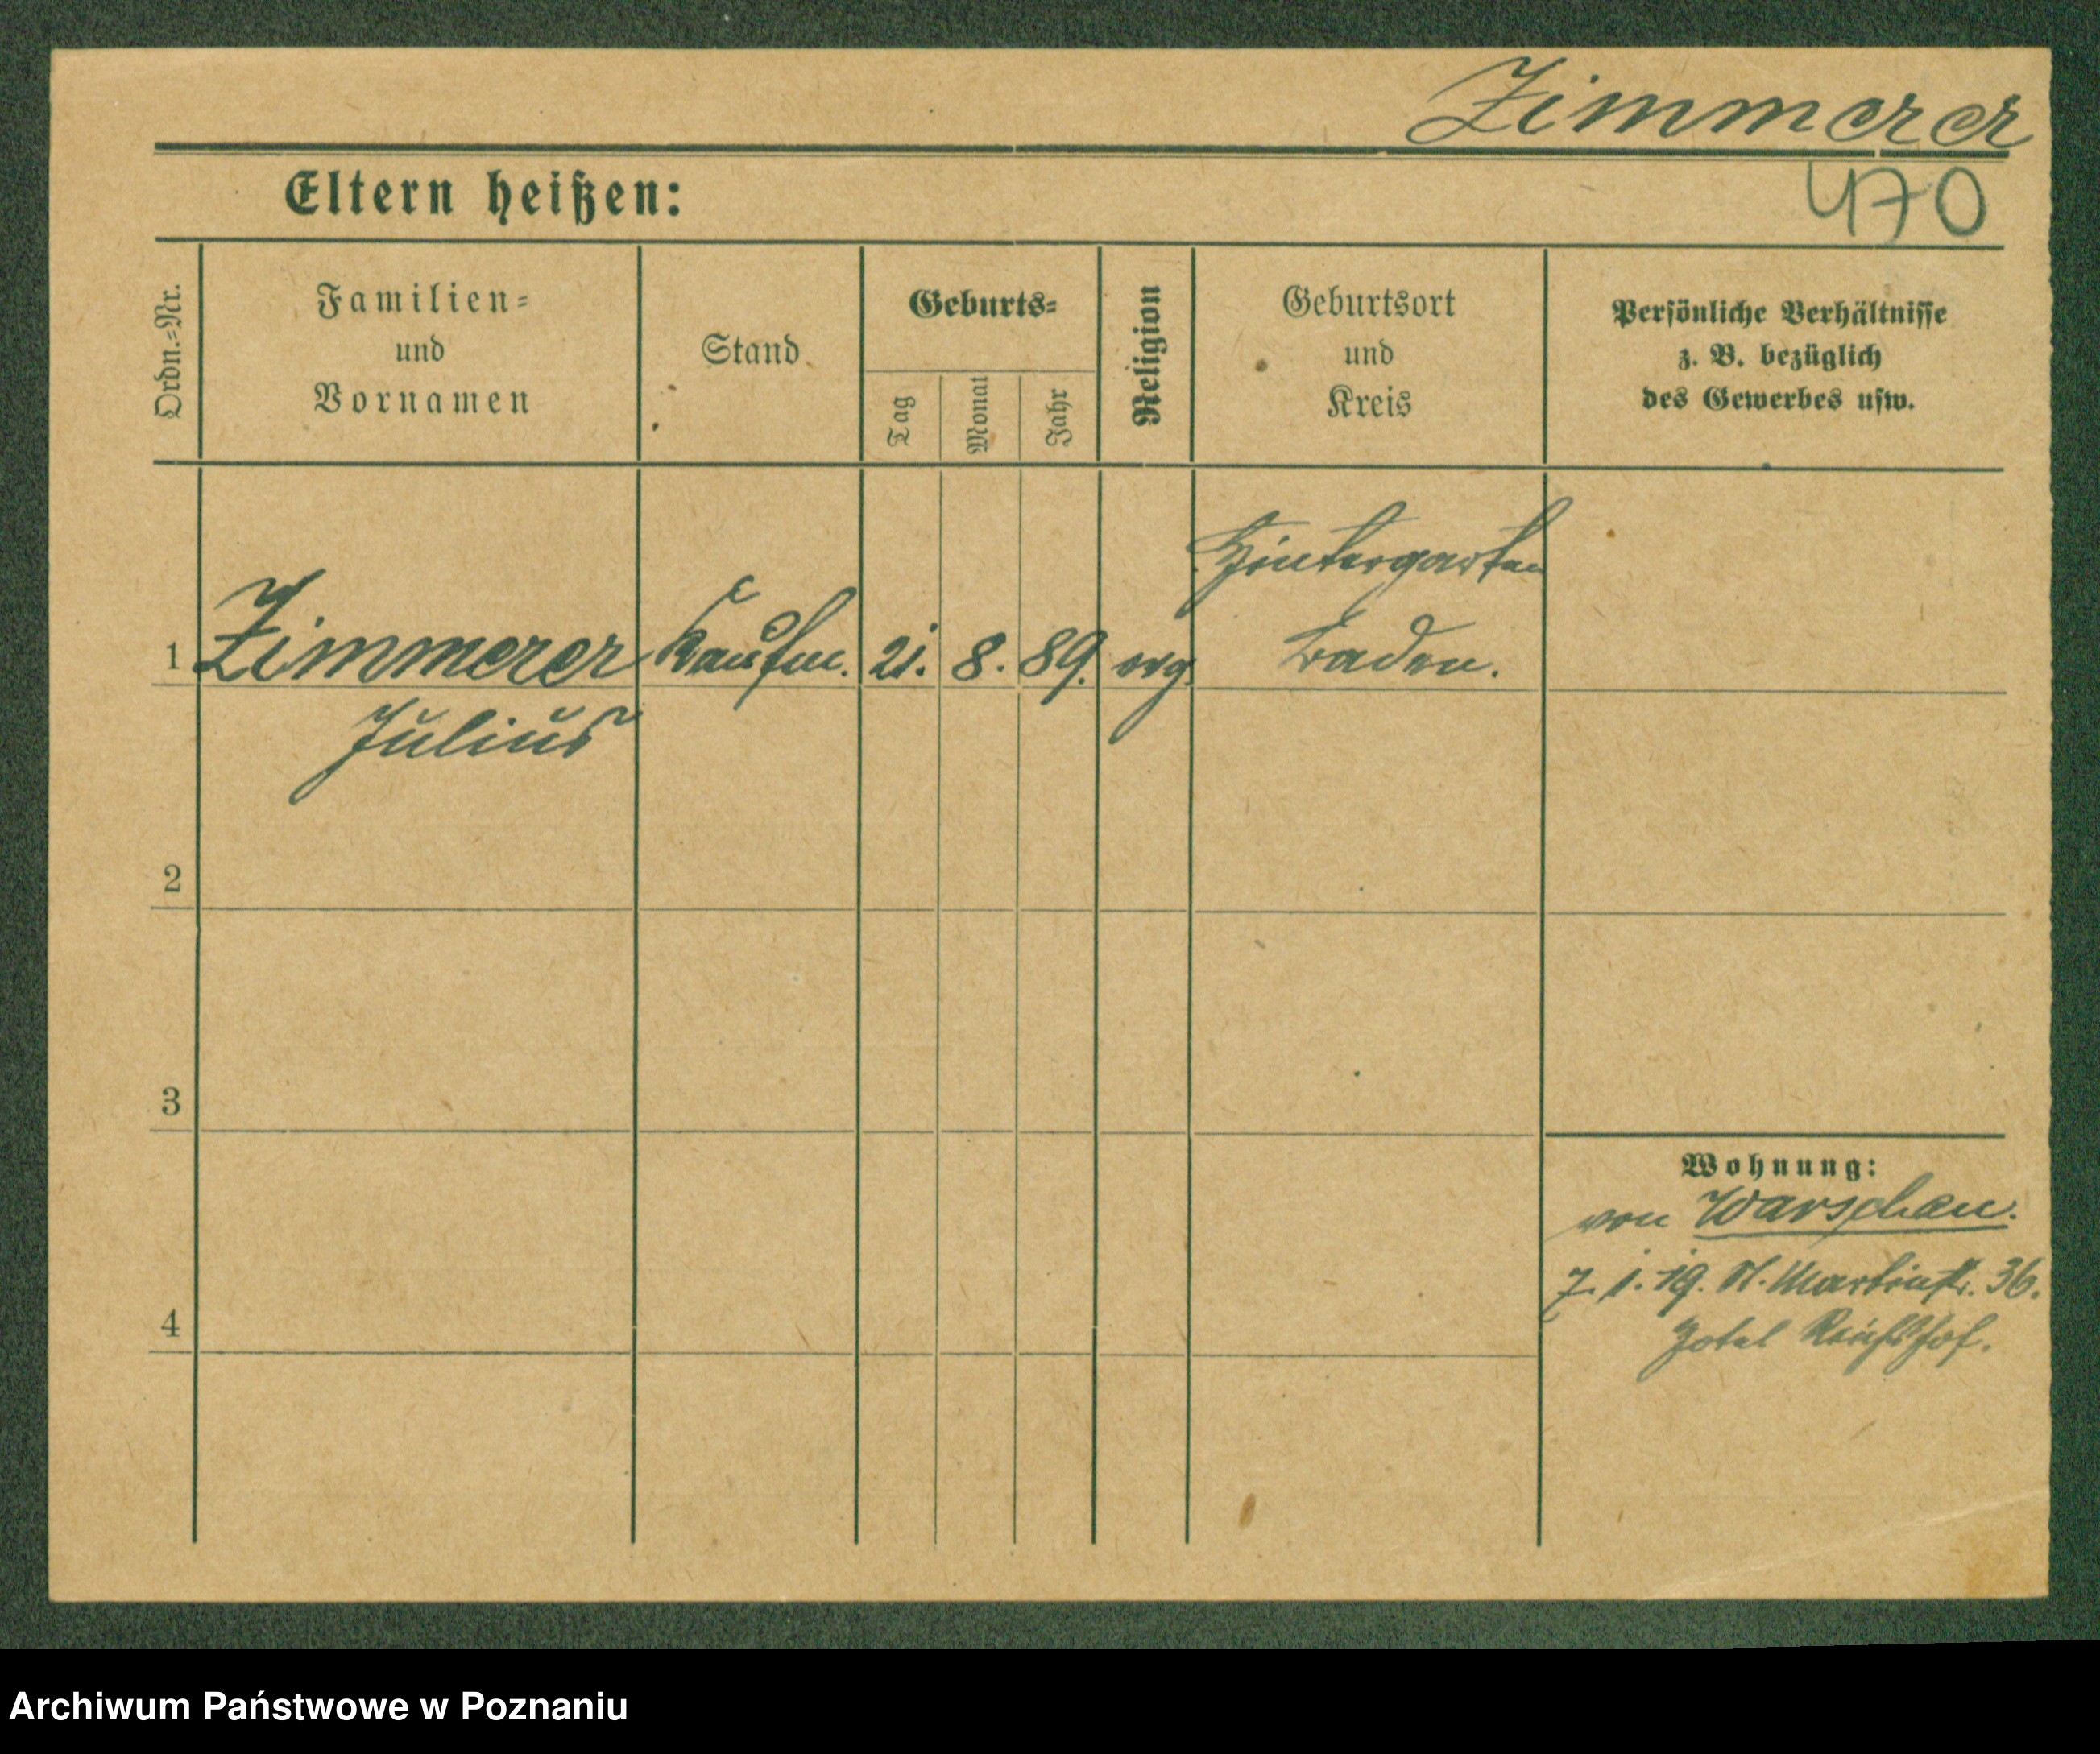 Zimmerer
470
Eltern heißen:
Ordn.=Nr.
Familien=
und
Vornamen
Stand
Geburts=
Tag
Monat
Jahr
Religion
Geburtsort
und
Kreis
Persönliche Verhältnisse
z. B. bezüglich
des Gewerbes usw.
Hintergarten
1 Zimmerer Kaufm. 21. 8. 89. evg Baden.
Julius
2
3
Wohnung:
von Warschau.
7. 1. 19. St. Martinstr. 36.
4
Hotel Reichshof.
Archiwum Państwowe w Poznaniu